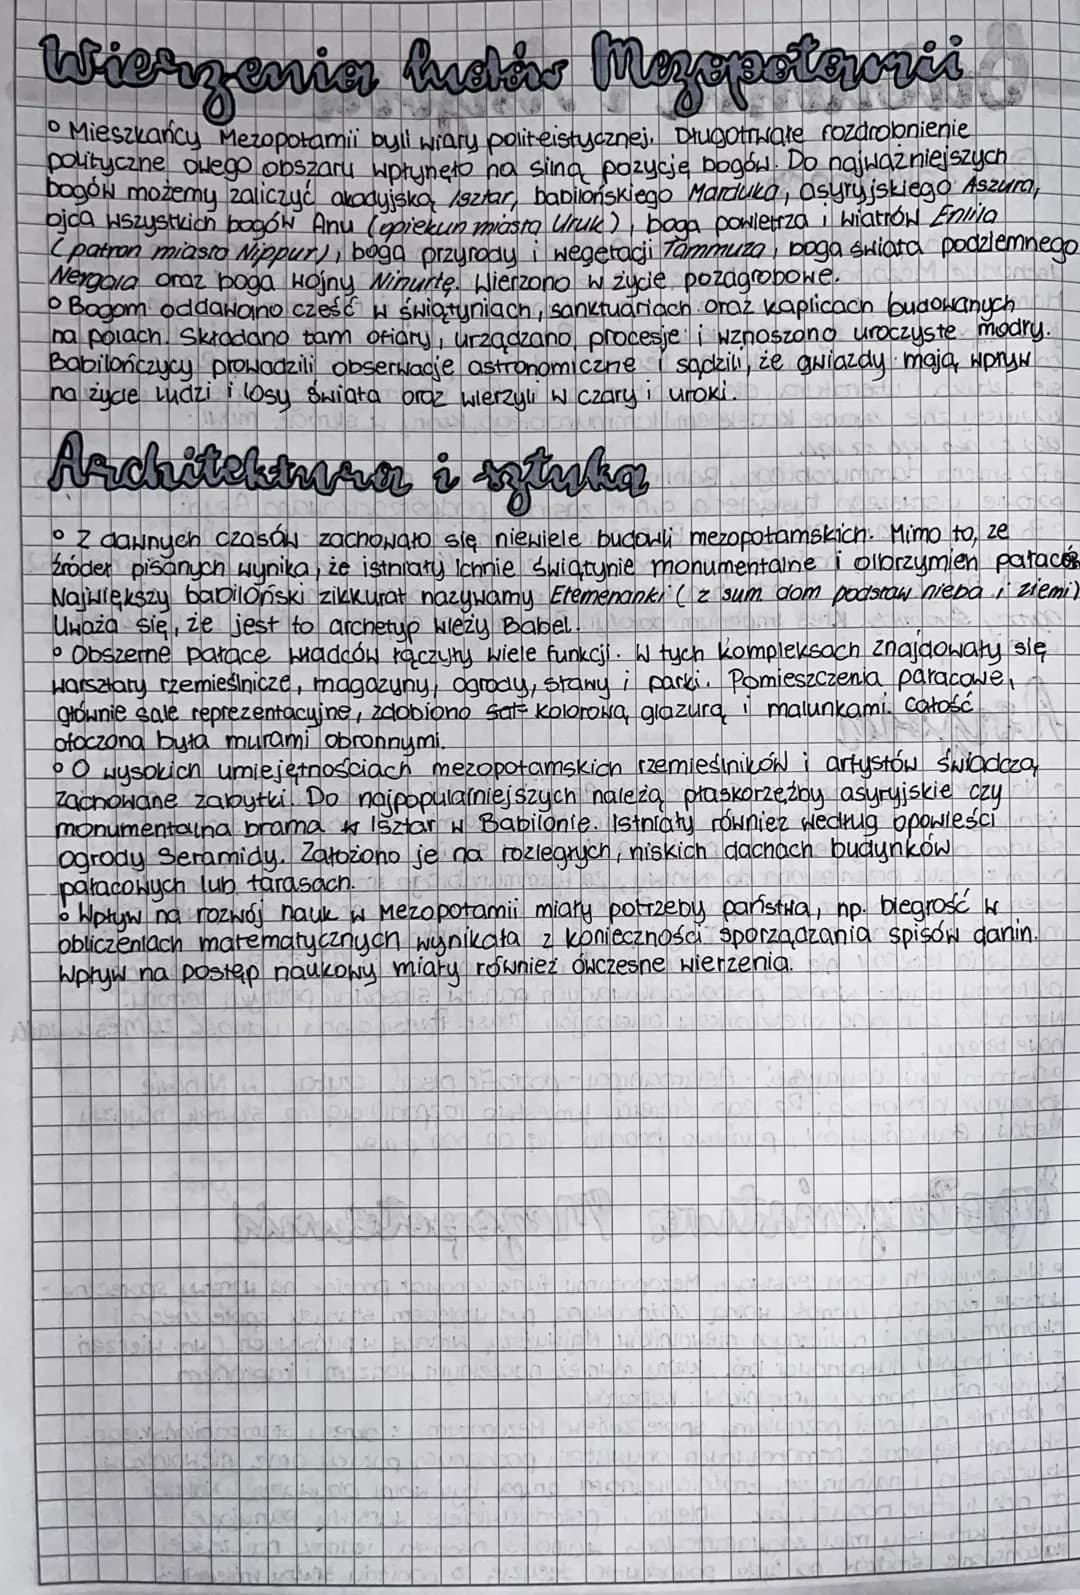 Wierzenia ludów Mezopotamii
° Mieszkańcy Mezopotamii byli wiary politeistycznej. Długotrwałe rozdrobnienie
polityczne owego obszaru wpłynęło na silną pozycję bogów. Do najważniejszych
bogów możemy zaliczyć akadyjską Isztar, babilońskiego Marduka, asyryjskiego Aszura,
ojca wszystkich bogów Anu (opiekun miasta Uruk), boga powietrza i wiatrów Enlila
(patron miasto Nippur), boga przyrody i wegetacji Tammuza, boga świata podziemnego
Nergala oraz boga wojny Ninurtę. Wierzono w życie pozagrobowe.
° Bogom oddawano cześć w świątyniach, sanktuariach oraz kaplicach budowanych
na polach. Składano tam ofiary, urządzano procesje i wznoszono uroczyste modły.
Babilończycy prowadzili obserwacje astronomiczne i sądzili, że gwiazdy mają wpływ
na życie ludzi i losy świata oraz wierzyli w czary i uroki.
Architektura i sztuka
° Z dawnych czasów zachowało się niewiele budowli mezopotamskich. Mimo to, ze
źródeł pisanych wynika, że istniały lchnie świątynie monumentalne i olbrzymien pałaców
Największy babiloński zikkurat nazywamy Etemenanki (z sum dom podstaw nieba i ziemi)
Uważa się, że jest to archetyp wieży Babel.
° Obszerne pałace władców łączyły wiele funkcji. W tych kompleksach znajdowały się
warsztaty rzemieślnicze, magazyny, ogrody, stawy i parki. Pomieszczenia pałacowe,
głównie sale reprezentacyjne, zdobiono kolorową glazurą i malunkami. Całość
otoczona była murami obronnymi.
° O wysokich umiejętnościach mezopotamskich rzemieślników i artystów świadczą
zachowane zabytki. Do najpopularniejszych należą płaskorzeźby asyryjskie czy
monumentalna brama Isztar w Babilonie. Istniały również według opowieści
ogrody Seramidy. Założono je na rozległych, niskich dachach budynków
pałacowych lub tarasach.
° Wpływ na rozwój nauk w Mezopotamii miały potrzeby państwa, np. biegłość w
obliczeniach matematycznych wynikała z konieczności sporządzania spisów danin.
Wpływ na postęp naukowy miały również ówczesne wierzenia.